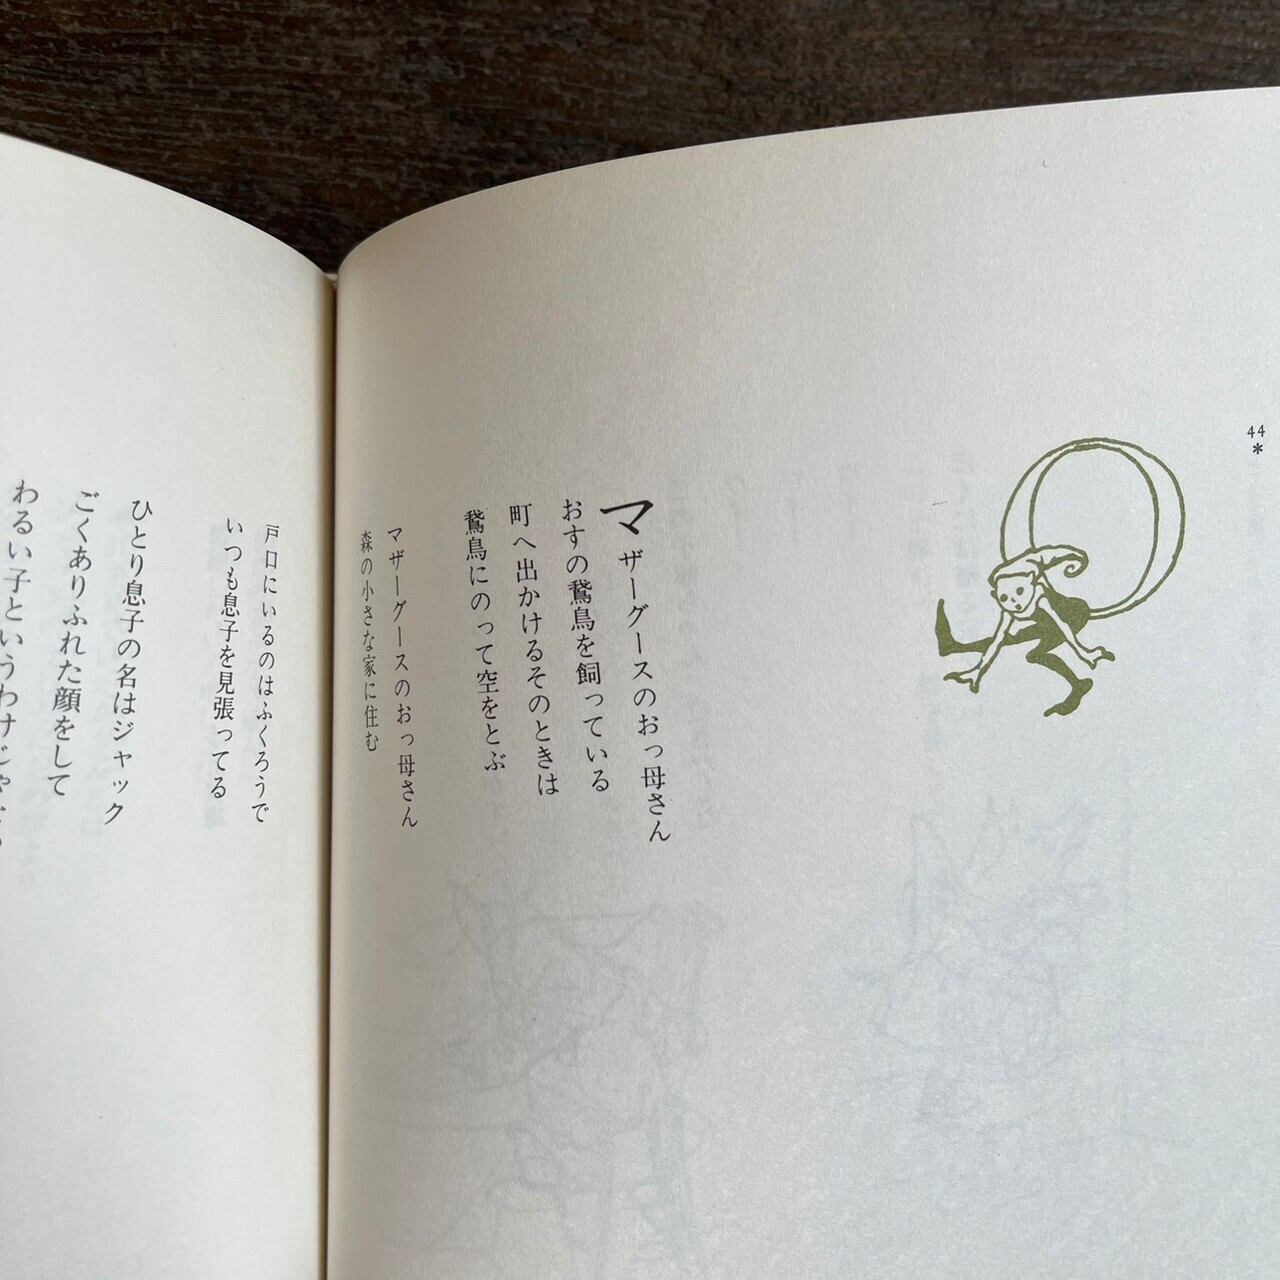 44
*
マザーグースのおっ母さん
おすの鵞鳥を飼っている
町へ出かけるそのときは
鵞鳥にのって空をとぶ
マザーグースのおっ母さん
森の小さな家に住む
戸口にいるのはふくろうで
いつも息子を見張ってる
ひとり息子の名はジャック
ごくありふれた顔をして
わるい子というわけじゃ